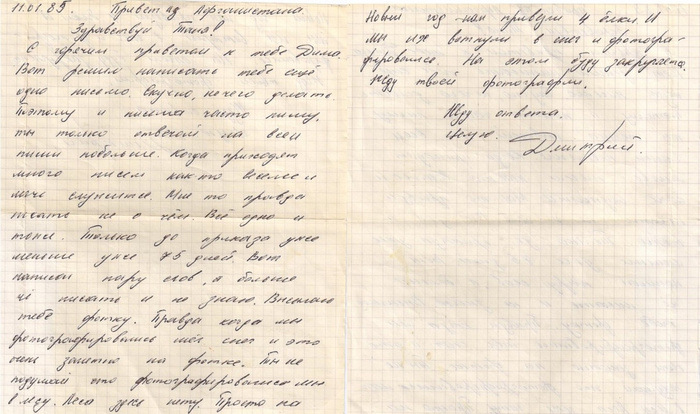 11.01.85. Привет из Афганистана.
Здравствуй Таня!
С горячим приветом к тебе Дима.
Вот решил написать тебе ещё
одно письмо. Скучно, нечего делать
поэтому и письма часто пишу,
ты только отвечай на всеи
пиши побольше. Когда приходят
много писем как то веселее и
легче служится. Мне то правда
писать не о чём. Всё одно и
тоже. Только до приказа уже
меньше уже 75 дней. Вот
написал пару слов, а больше
чё писать и не знаю. Высылаю
тебе фотку. Правда когда мы
фотографировались шёл снег и это
очень заметно на фотке. Ты не
подумай что фотографировались мы
в лесу. Леса здесь нету. Просто на
Новый год нам привезли 4 ёлки и
мы их воткнули в снег и фотогра-
фировались. На этом буду закругляться.
Жду твоей фотографии.
Жду ответа.
Целую.
Дмитрий.